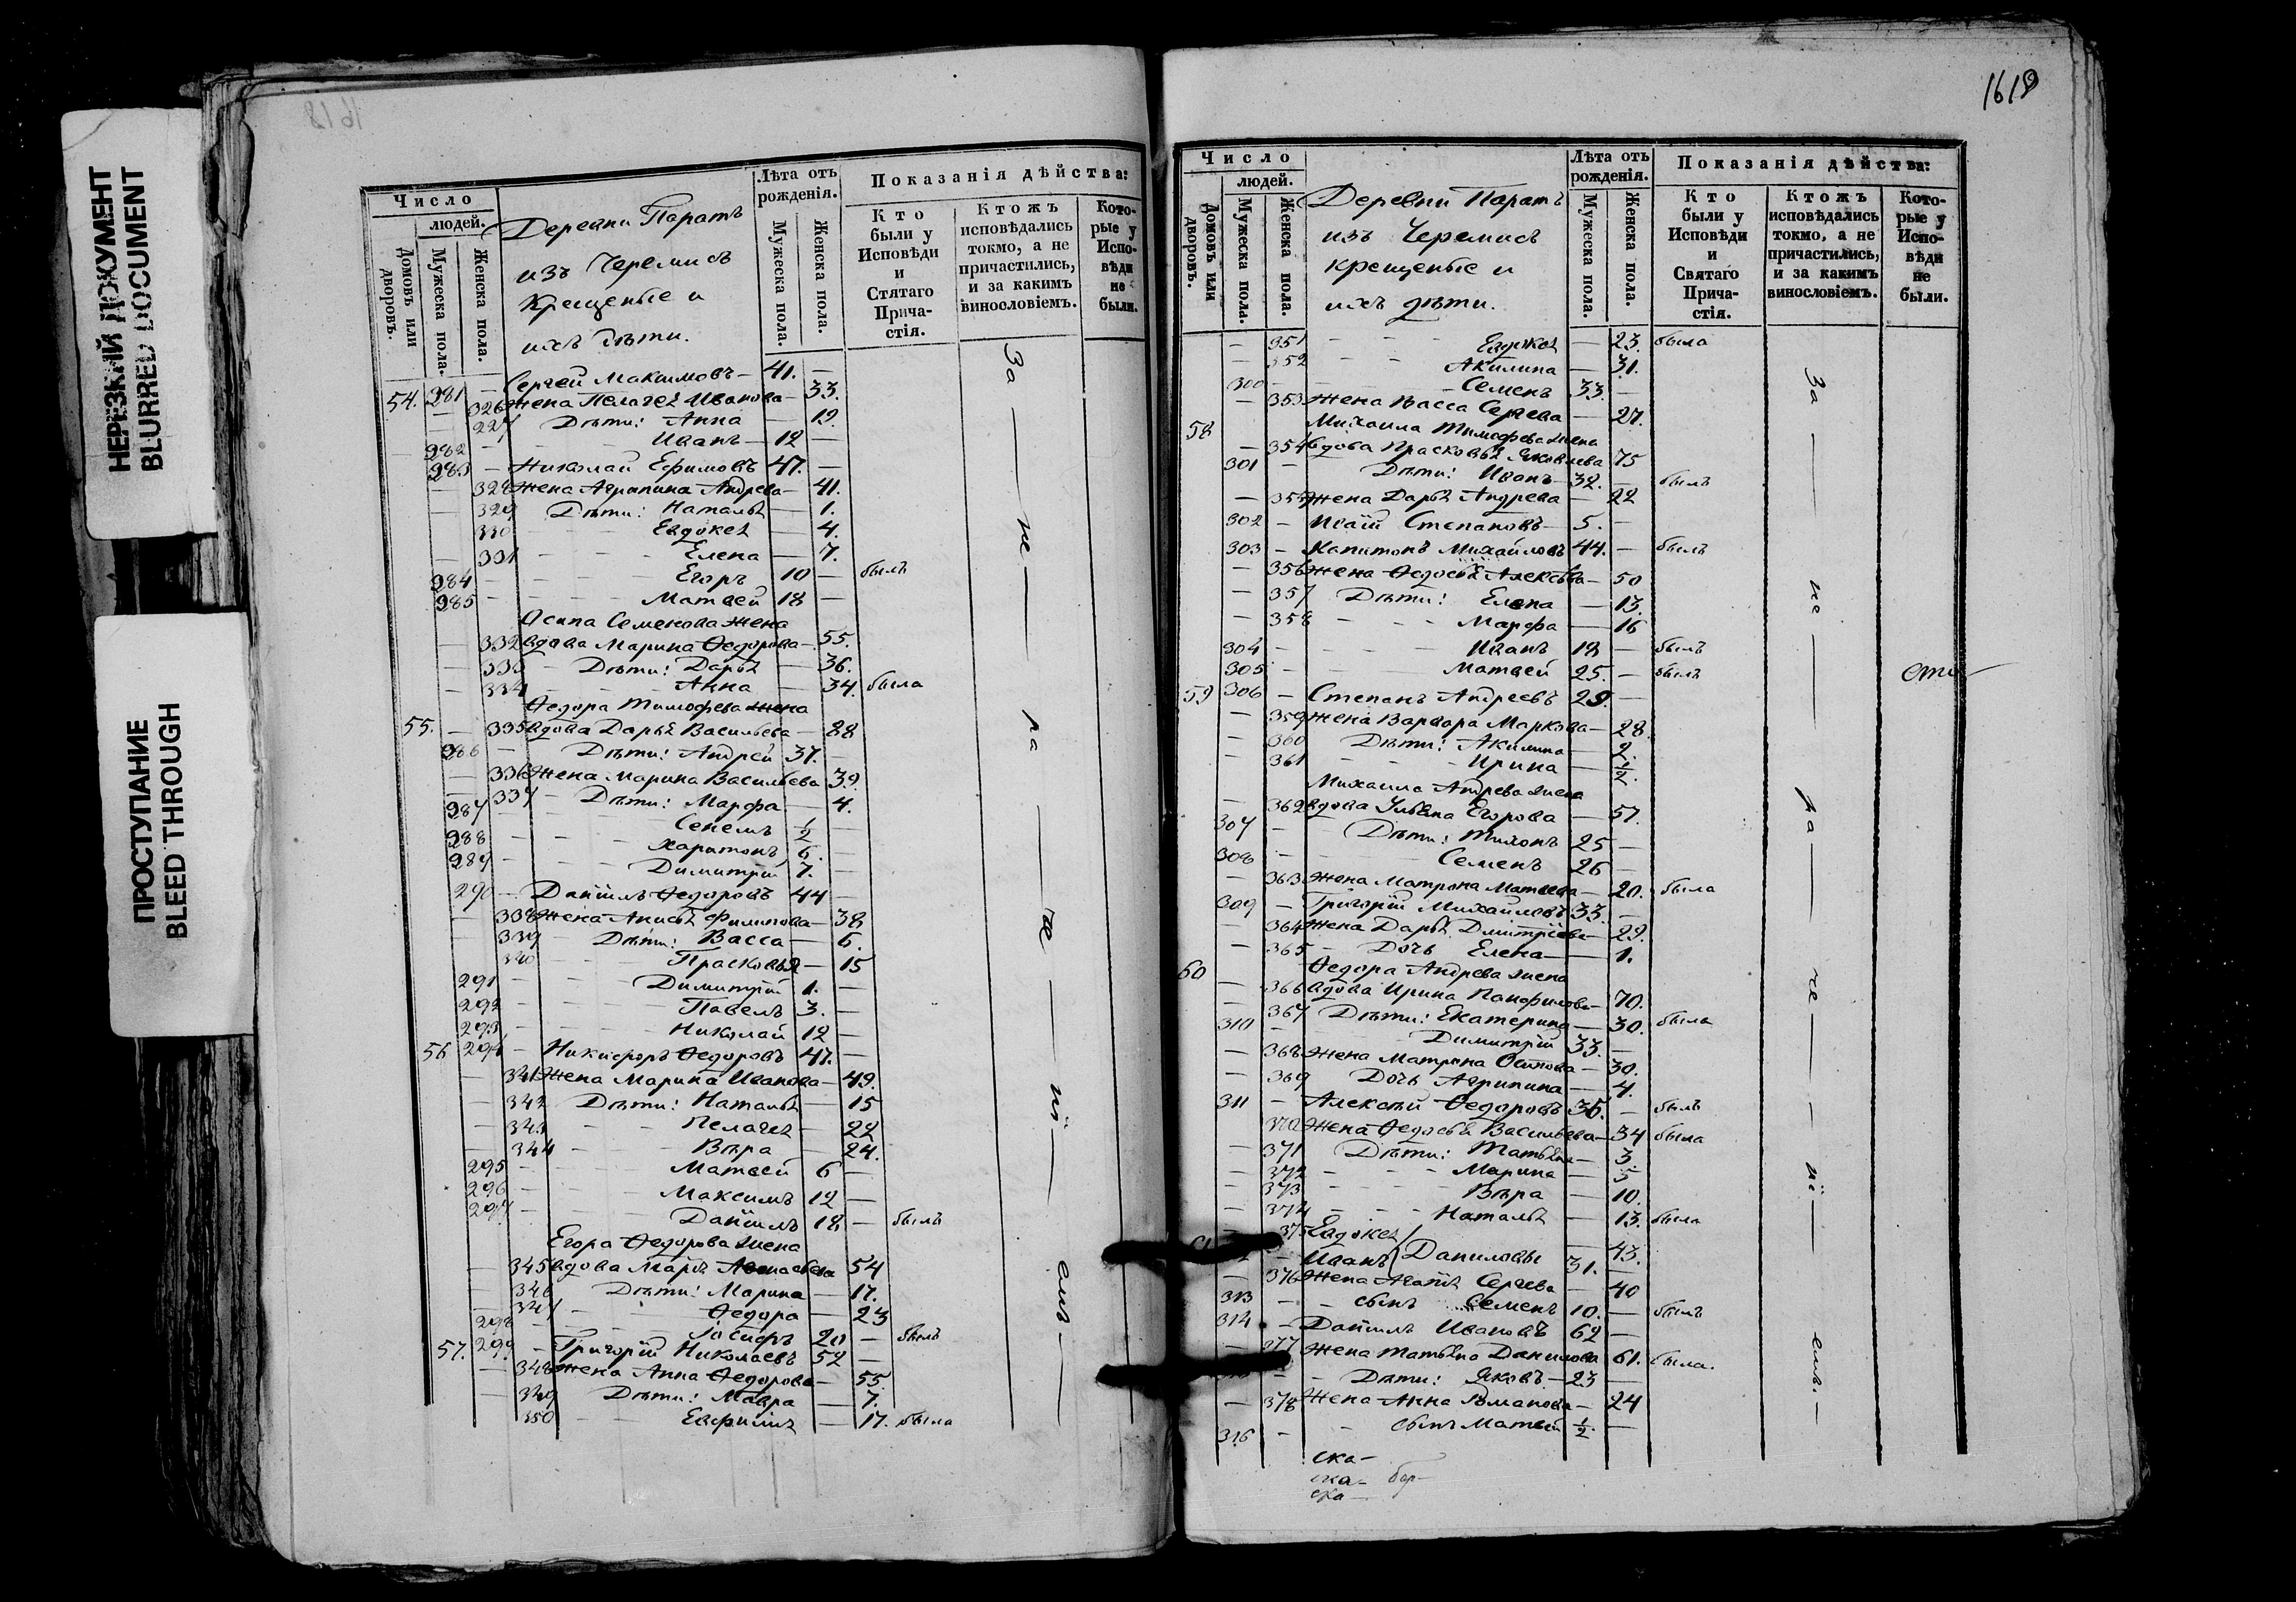 НЕРЕЗКИЙ ДОКУМЕНТ
BLURRED DOCUMENT
ПРОСТУПАНИЕ
BLEED THROUGH
Число
людей.
Домовъ или дворовъ.
Мужеска пола.
Женска пола.
Деревни Паратъ
изъ Черемисъ
Крещеные и
ихъ дѣти.
Лѣта отъ рожденія.
Мужеска пола.
Женска пола.
Показанія дѣйства:
Кто были у Исповѣди и Стятаго Прича-стія.
Ктожъ исповѣдались токмо, а не причастились, и за какимъ винословіемъ.
Кото-рые у Испо-вѣди не были.
54. 281 — Сергей Максимовъ — 41. —
— 326 жена Пелагея Иванова — 33.
— 227 Дѣти: Анна — 12.
282 — Иванъ — 12 —
283 — Николай Ефимовъ 47. —
— 328 жена Агрипина Андрева — 41.
— 329 Дѣти: Наталья — 1.
330 Евдокея — 4.
— 331 Елена — 7.
284 — Егоръ 10 — былъ
285 — Матвей 18 —
Осипа Семенова жена
— 332 вдова Марина Ѳедорова — 55.
— 333 Дѣти: Дарья — 36.
— 334 Анна — 34. была
Ѳедора Тимофева жена
55. — 335 вдова Дарья Васильева — 88
286 — Дѣти: Андрей 37. —
— 336 жена Марина Васильева 39.
— 337 Дѣти: Марфа — 4.
287 — ½ —
288 — Харитонъ 6. —
289 — Димитрій 7. —
290 — Даніилъ Ѳедоровъ 44 —
— 338 жена Анисья Филипова — 38
— 339 Дѣти: Васса — 6.
340 Прасковья — 15
291 — Димитрій 1. —
292 — Павелъ 3. —
293 — Николай 12 —
56 294 — Никифоръ Ѳедоровъ 47. —
— 341 жена Марина Иванова — 49.
— 342 Дѣти: Наталья — 15
— 343 Пелагея — 22
— 344 Вѣра — 24.
295 — Матвей 6 —
296 — Максимъ 12 —
297 — Даніилъ 18 — былъ
Егора Ѳедорова жена
— 345 вдова Марья 54
— 346 Дѣти: Марина — 17.
— 347 Ѳедора — 23
298 — Іосифъ 20 — былъ
57. 299 — Григорій Николаевъ 52 —
— 348 жена Анна Ѳедорова — 55.
— 349 Дѣти: Мавра — 7.
350 — 17. была
За — не — ра — че — ні — емъ —
1618
Число
людей.
Домовъ или дворовъ.
Мужеска пола.
Женска пола.
Деревни Паратъ
изъ Черемисъ
крещеные и
ихъ дѣти.
Лѣта отъ рожденія.
Мужеска пола.
Женска пола.
Показанія дѣйства:
Кто были у Исповѣди и Святаго Прича-стія.
Ктожъ исповѣдались токмо, а не причастились, и за какимъ винословіемъ.
Кото-рые у Испо-вѣди не были.
— 351 Евдокея — 23. была
— 352 Акилина — 31.
300 — Семенъ 33. —
— 353 жена Васса Сергева — 27.
58 Михаила Тимофева жена
— 354 вдова Прасковья Яковлева 75
301 — Дѣти: Иванъ 32. — былъ
— 355 жена Дарья Андрева — 22
302 — Степановъ 5. —
303 — Капитонъ Михайловъ 44. — былъ
— 356 жена Ѳедосья Алексѣва — 50
— 357 Дѣти: Елена — 13.
— 358 Марфа — 16
304 — Иванъ 18 — былъ
305 — Матвей 25. — былъ
59 306 — Степанъ Андреевъ 29. —
— 359 жена Варвара Маркова — 28.
— 360 Дѣти: Акилина — 2.
— 361 Ирина — ½.
Михаила Андрева жена
— 362 вдова Ульяна Егорова — 57.
307 — Дѣти: Тихонъ 25 —
308 — Семенъ 26 —
— 363 жена Матрона Матвева — 20. была
309 — Григорій Михайловъ 33. —
— 364 жена Дарья Дмитріева — 29.
— 365 Дочь Елена — 1.
60 Ѳедора Андрева жена
— 366 вдова Ирина Панфилова — 70.
— 367 Дѣти: Екатерина — 30. была
310 — Димитрій 33. —
— 368 жена Матрона Осипова — 30.
— 369 Дочь Агрипина — 4.
311 — Алексѣй Ѳедоровъ 36. — былъ
370 жена Ѳедосья Васильева — 34 была
— 371 Дѣти: Татьяна — 3
— 372 Марина — 5
— 373 Вѣра — 10.
— 374 Наталья — 13. была
375 Евдокея — 43.
Иванъ Даниловы 31. —
— 376 жена Агапія Сергева — 40
313 — сынъ Семенъ 10. — былъ
314 — Даніилъ Ивановъ 62 —
377 жена Татьяна Данилова 61. была.
— Дѣти: Яковъ — 23 —
— 378 жена Анна Романова — 24
316 — сынъ Матвей ½. —
За — не — ра — че — ні — емъ. —
ска-
ска-
ска-